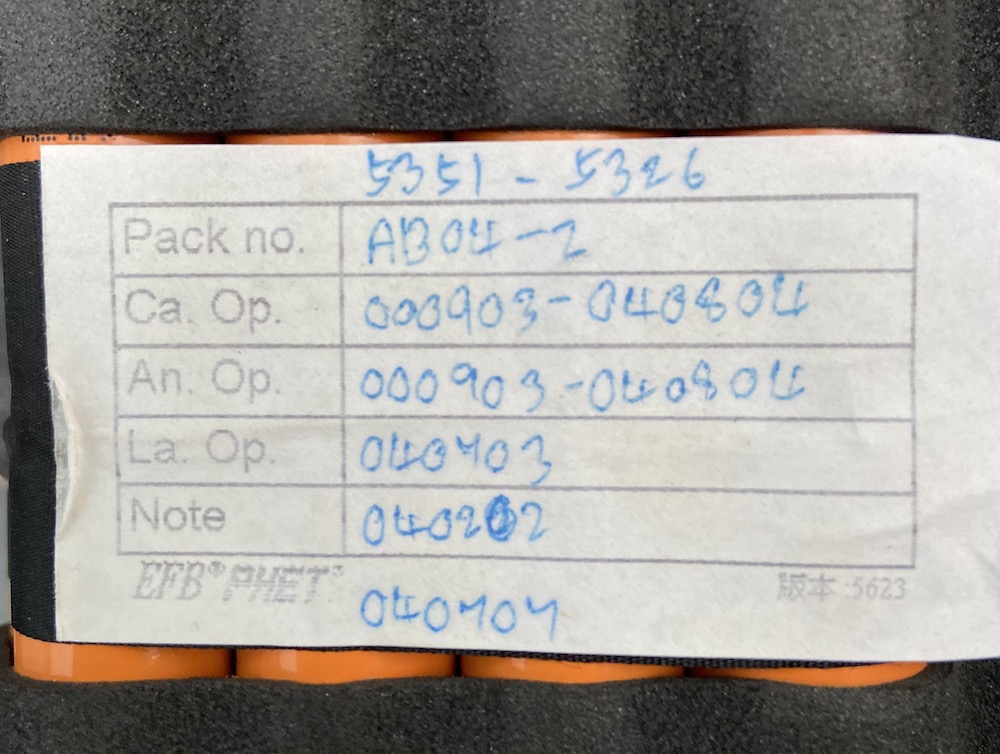 5351 - 5326
Pack no. AB04-2
Ca. Op. 000903-040804
An. Op. 000903-040804
La. Op. 040703
Note 040202
EFB® PHET®
版本:5623
040704